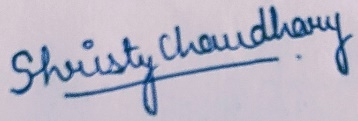 Shristy Chaudhary